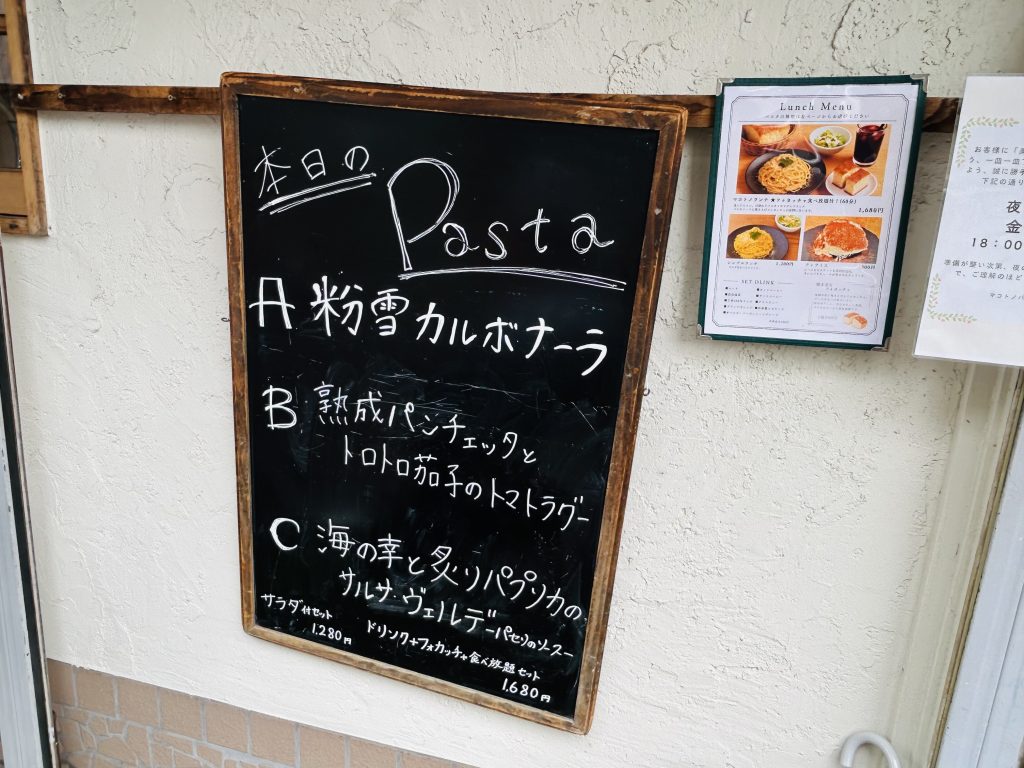 本日の Pasta
A 粉雪カルボナーラ
B 熟成パンチェッタと
トロトロ茄子のトマトラグー
C 海の幸と炙りパプリカの
サルサ・ヴェルデ -パセリのソース-
サラダ付セット
1.280円
ドリンク+フォカッチャ食べ放題セット
1.680円
Lunch Menu
マコトノランチ ★フォカッチャ食べ放題付！(60分)
1,680円
SET DLINK
お客様に「美
う、一皿一皿
よう、誠に勝手
下記の通り
夜
金
18：00
準備が整い次第、夜の
で、ご理解のほど
マコトノパ